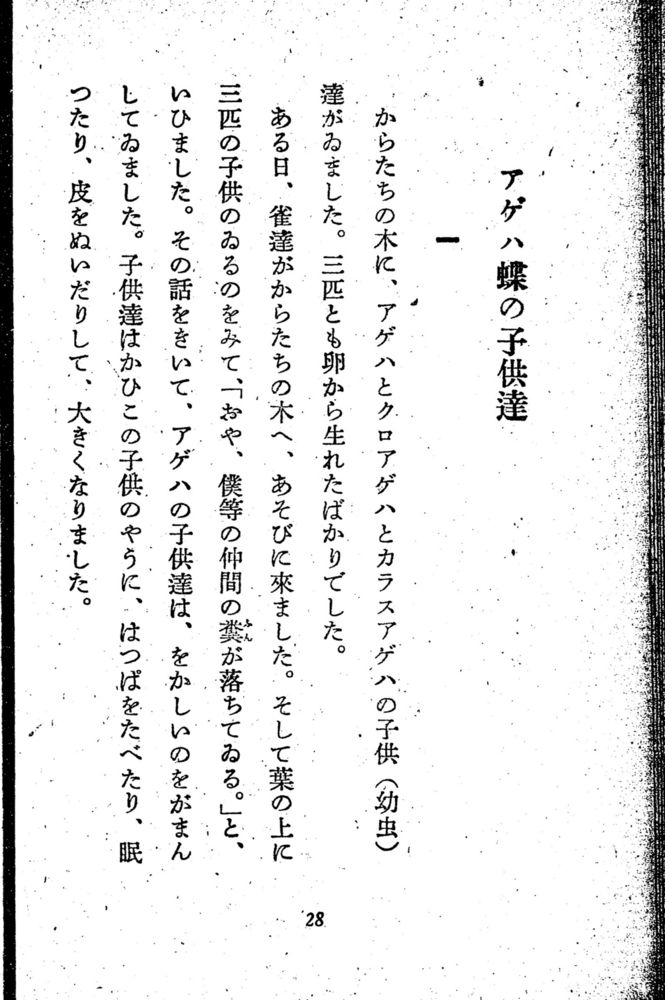 アゲハ蝶の子供達
一
からたちの木に、アゲハとクロアゲハとカラスアゲハの子供（幼虫）
達がゐました。三匹とも卵から生れたばかりでした。
ある日、雀達がからたちの木へ、あそびに來ました。そして葉の上に
三匹の子供のゐるのをみて、「おや、僕等の仲間の糞ふんが落ちてゐる。」と、
いひました。その話をきいて、アゲハの子供達は、をかしいのをがまん
してゐました。子供達はかひこの子供のやうに、はつぱをたべたり、眠
つたり、皮をぬいだりして、大きくなりました。
28